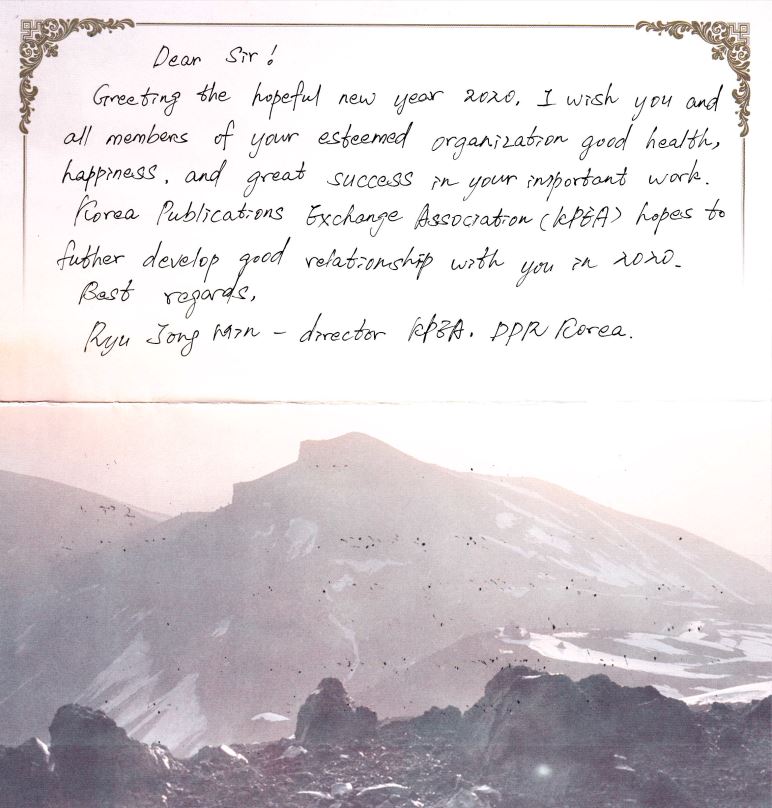 Dear Sir!
Greeting the hopeful new year 2020, I wish you and
all members of your esteemed organization good health,
happiness, and great success in your important work.
Korea Publications Exchange Association (KPEA) hopes to
futher develop good relationship with you in 2020.
Best regards,
Ryu Jong Min - director KPEA. DPR Korea.